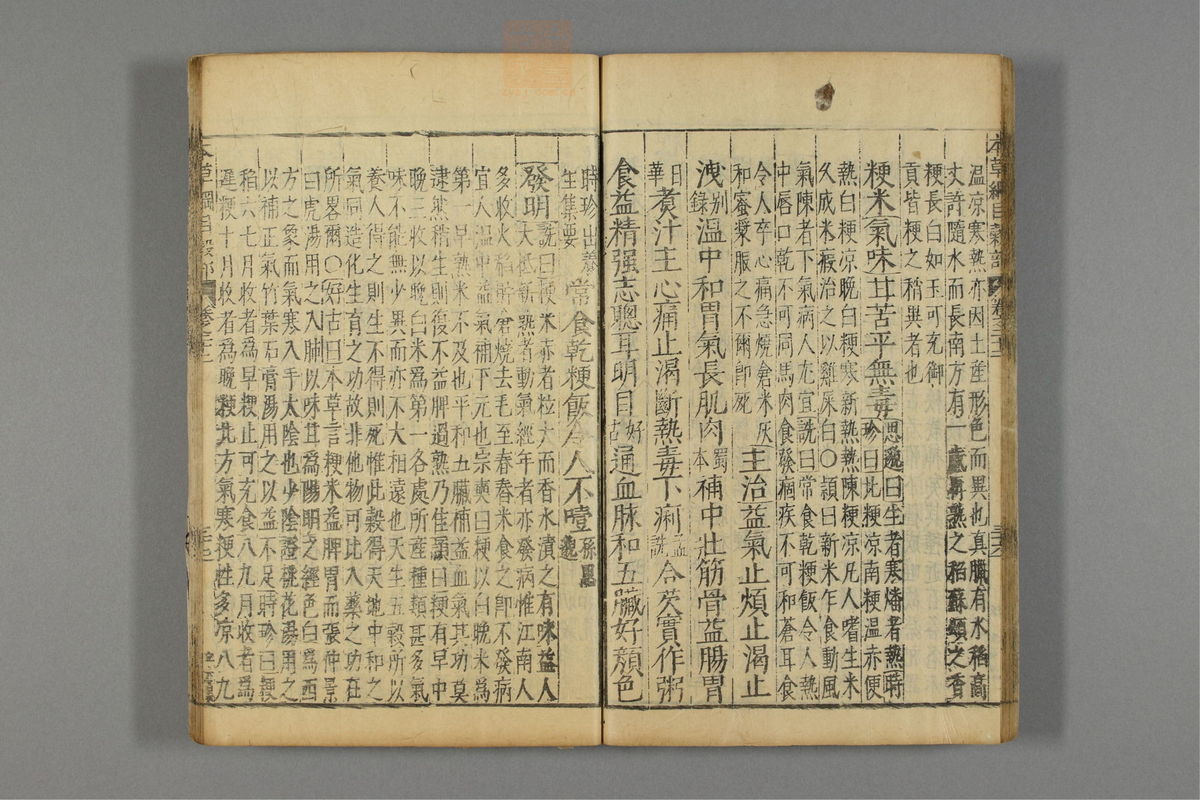 本草綱目穀部 卷之二十二
溫凉寒熱亦因土産形色而異也真臘有水稻高
丈許隨水而長南方有一歲再熟之稻蘇頌之香
粳長白如玉可充御
貢皆粳之稍異者也
粳米氣味甘苦平無毒思邈曰生者寒燔者熱時
珍曰北粳凉南粳温赤粳
熱白粳凉晚白粳寒新粳熱陳粳凉凡人嗜生米
久成米瘕治之以雞屎白○頴曰新米乍食動風
氣陳者下氣病人尤宜詵曰常食乾粳飯令人熱
中唇口乾不可同馬肉食發痼疾不可和蒼耳食
令人卒心痛急燒倉米灰
和蜜漿服之不爾卽死
主治益氣止煩止渴止
洩别録温中和胃氣長肌肉蜀本補中壯筋骨益腸胃
日華煮汁主心痛止渴斷熱毒下痢孟詵合芡實作粥
食益精强志聰耳明目好古通血脉和五臟好顔色
時珍出養
生集要
常食乾粳飯令人不噎孫思邈
發明詵曰粳米赤者粒大而香水漬之有味益人
大抵新熟者動氣經年者亦發病惟江南人
多收火稻貯倉燒去毛至春舂米食之卽不發病
宜人温中益氣補下元也宗奭曰粳以白晚米爲
第一早熟米不及也平和五臟補益血氣其功莫
逮然稍生則復不益脾過熟乃佳頴曰粳有早中
晚三收以晚白米爲第一各處所産種類甚多氣
味不能無少異而亦不大相遠也天生五穀所以
養人得之則生不得則死惟此穀得天地中和之
氣同造化生育之功故非他物可比入藥之功在
所畧爾○好古曰本草言粳米益脾胃而張仲景
曰虎湯用之入肺以味甘爲陽明之經色白爲西
方之象而氣寒入手太陰也少陰證桃花湯用之
以補正氣竹葉石膏湯用之以益不足時珍曰粳
稻六七月收者爲早粳止可充食八九月收者爲
遲粳十月收者爲晚粳北方氣寒粳性多凉八九
本草綱目穀部 卷之二十二